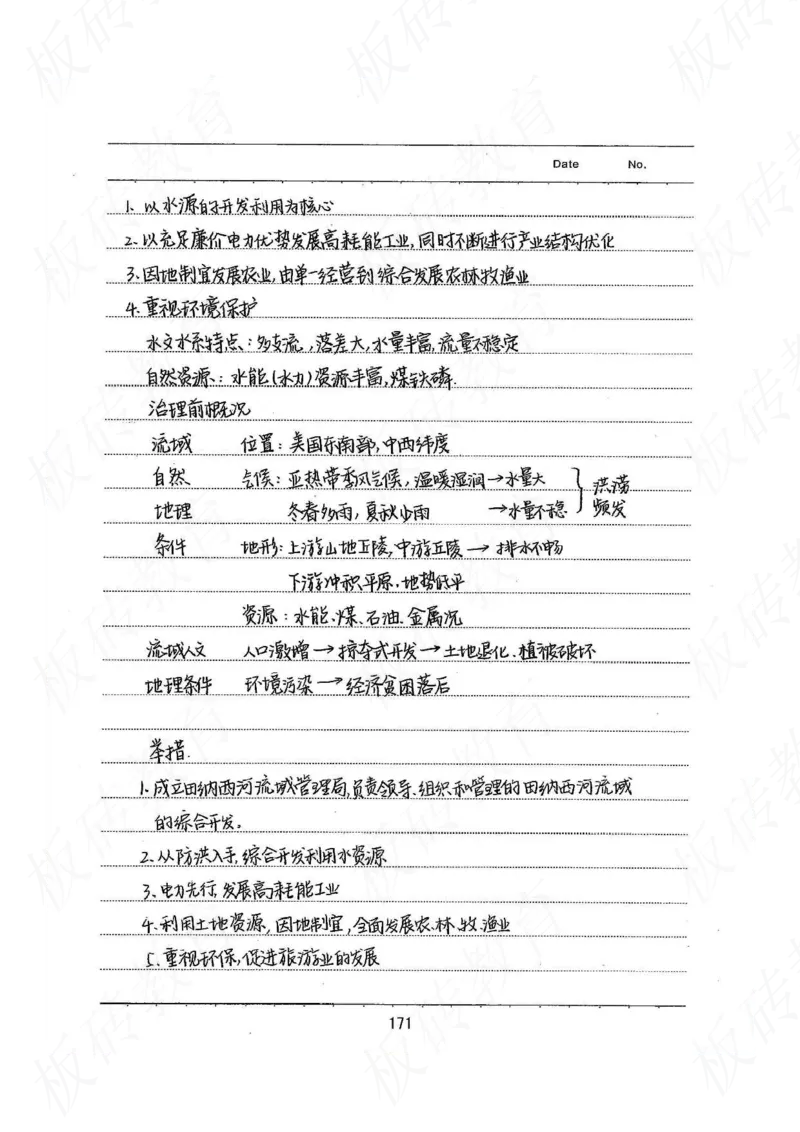 Date No.
1. 以水源的开发利用为核心
2. 以充足廉价电力优势发展高耗能工业,同时不断进行产业结构优化
3. 因地制宜发展农业,由单一经营到综合发展农林牧渔业
4. 重视环境保护
水文水系特点:多支流,落差大,水量丰富,流量不稳定
自然资源:水能(水力)资源丰富,煤铁磷.
治理前概况
流域 位置:美国东南部,中西纬度
自然 气候:亚热带季风气候,温暖湿润→水量大 } 洪涝
地理 冬春多雨,夏秋少雨 →水量不稳 频发
条件 地形:上游山地丘陵,中游丘陵→排水不畅
下游冲积平原.地势低平
资源:水能、煤、石油、金属沉
流域人文 人口激增→掠夺式开发→土地退化.植被破坏
地理条件 环境污染→经济贫困落后
举措.
1. 成立田纳西河流域管理局,负责领导、组织和管理的田纳西河流域
的综合开发。
2. 从防洪入手,综合开发利用水资源
3、电力先行,发展高耗能工业
4. 利用土地资源,因地制宜,全面发展农.林.牧.渔业
5. 重视环保,促进旅游业的发展
171
板砖教育